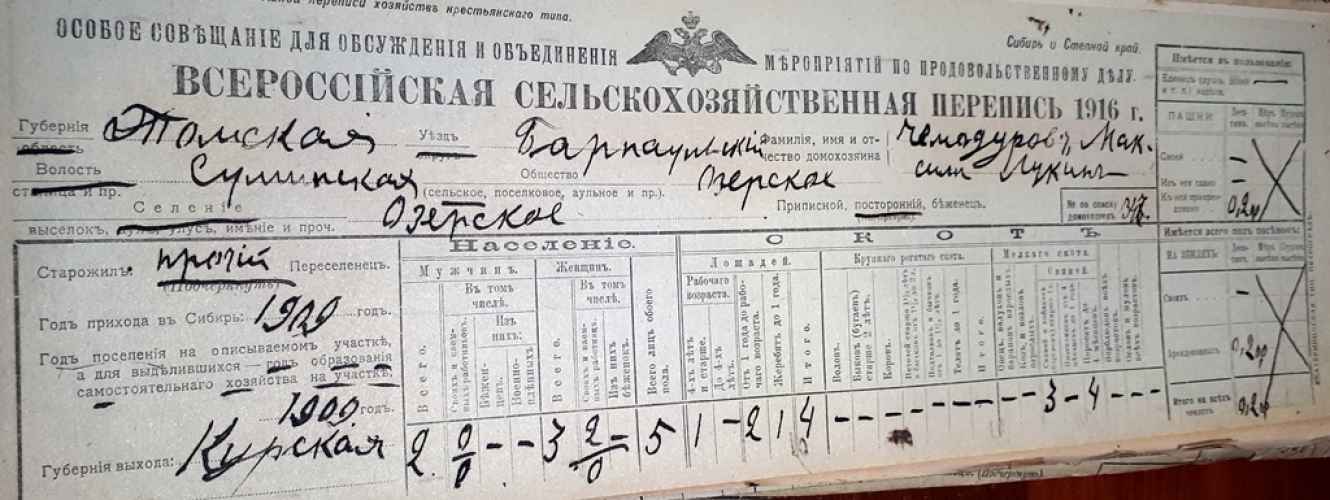 переписи хозяйствъ крестьянскаго типа.
ОСОБОЕ СОВѢЩАНІЕ ДЛЯ ОБСУЖДЕНІЯ И ОБЪЕДИНЕНІЯ МѢРОПРІЯТІЙ ПО ПРОДОВОЛЬСТВЕННОМУ ДѢЛУ.
Сибирь и Степной край.
ВСЕРОССІЙСКАЯ СЕЛЬСКОХОЗЯЙСТВЕННАЯ ПЕРЕПИСЬ 1916 г.
Губернія область Томская Уѣздъ Барнаульскій Фамилія, имя и отчество домохозяина Чемодуровъ Максим Лукинъ
Волость станица и пр. Суминская Общество (сельское, поселковое, аульное и пр.) Озерское
Приписной, посторонній, бѣженецъ.
№ по списку домохозяевъ
Селеніе выселокъ, аулъ, улусъ, имѣніе и проч. Озерское
Старожилъ прочій Переселенецъ.
(Подчеркнуть)
Годъ прихода въ Сибирь: 1909 годъ.
Годъ поселенія на описываемомъ участкѣ,
а для выдѣлившихся — годъ образованія
самостоятельнаго хозяйства на участкѣ,
1909 годъ.
Губернія выхода: Курская
Населеніе.
Мужчинъ. Женщинъ.
Въ томъ числѣ. Въ томъ числѣ.
Изъ нихъ:
Всего.
Своихъ и наемныхъ работниковъ.
Бѣженцевъ.
Военноплѣнныхъ
Всего.
Своихъ и наемныхъ работницъ.
Изъ нихъ бѣженокъ.
Всего лицъ обоего пола.
2 0/0 - - 3 2/0 = 5
СКОТЪ
Лошадей. Крупнаго рогатаго скота. Мелкаго скота.
Рабочаго возраста. Свиней.
4-хъ лѣтъ и старше.
До 4-хъ лѣтъ.
Отъ 1 года до рабочаго возраста.
Жеребятъ до 1 года.
Итого.
Воловъ.
Быковъ (бугаевъ) старше 2 лѣтъ.
Коровъ.
Телятъ до 1 года.
Итого.
1 - 2 1 4 - - - - - - - - 3 - 4 - - -
Имѣется въ пользованіи:
ПАШНИ:
Своей -
0,2
Имѣется всего подъ посѣвомъ:
НА ЗЕМЛЯХЪ:
Своихъ -
Арендованныхъ 0,2
Итого на всѣхъ земляхъ 0,2